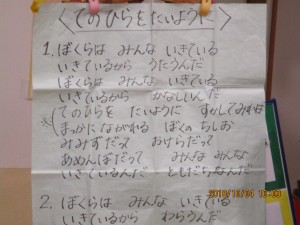 〈てのひらをたいように〉
1. ぼくらは みんな いきている
いきているから うたうんだ
ぼくらは みんな いきている
いきているから かなしいんだ
※(てのひらを たいように すかしてみれば
まっかに ながれる ぼくの ちしお
みみずだって おけらだって
あめんぼだって みんな みんな
いきているんだ ともだちなんだ
2. ぼくらは みんな いきている
いきているから わらうんだ